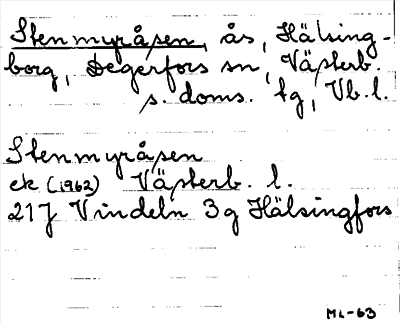 Stenmyråsen, ås, Hälsing-
borg, Degerfors sn, Västerb.
s. doms. tg, Vb. l.
Stenmyråsen
ek (1962) Västerb. l.
21J Vindeln 3g Hälsingfors
ML-63